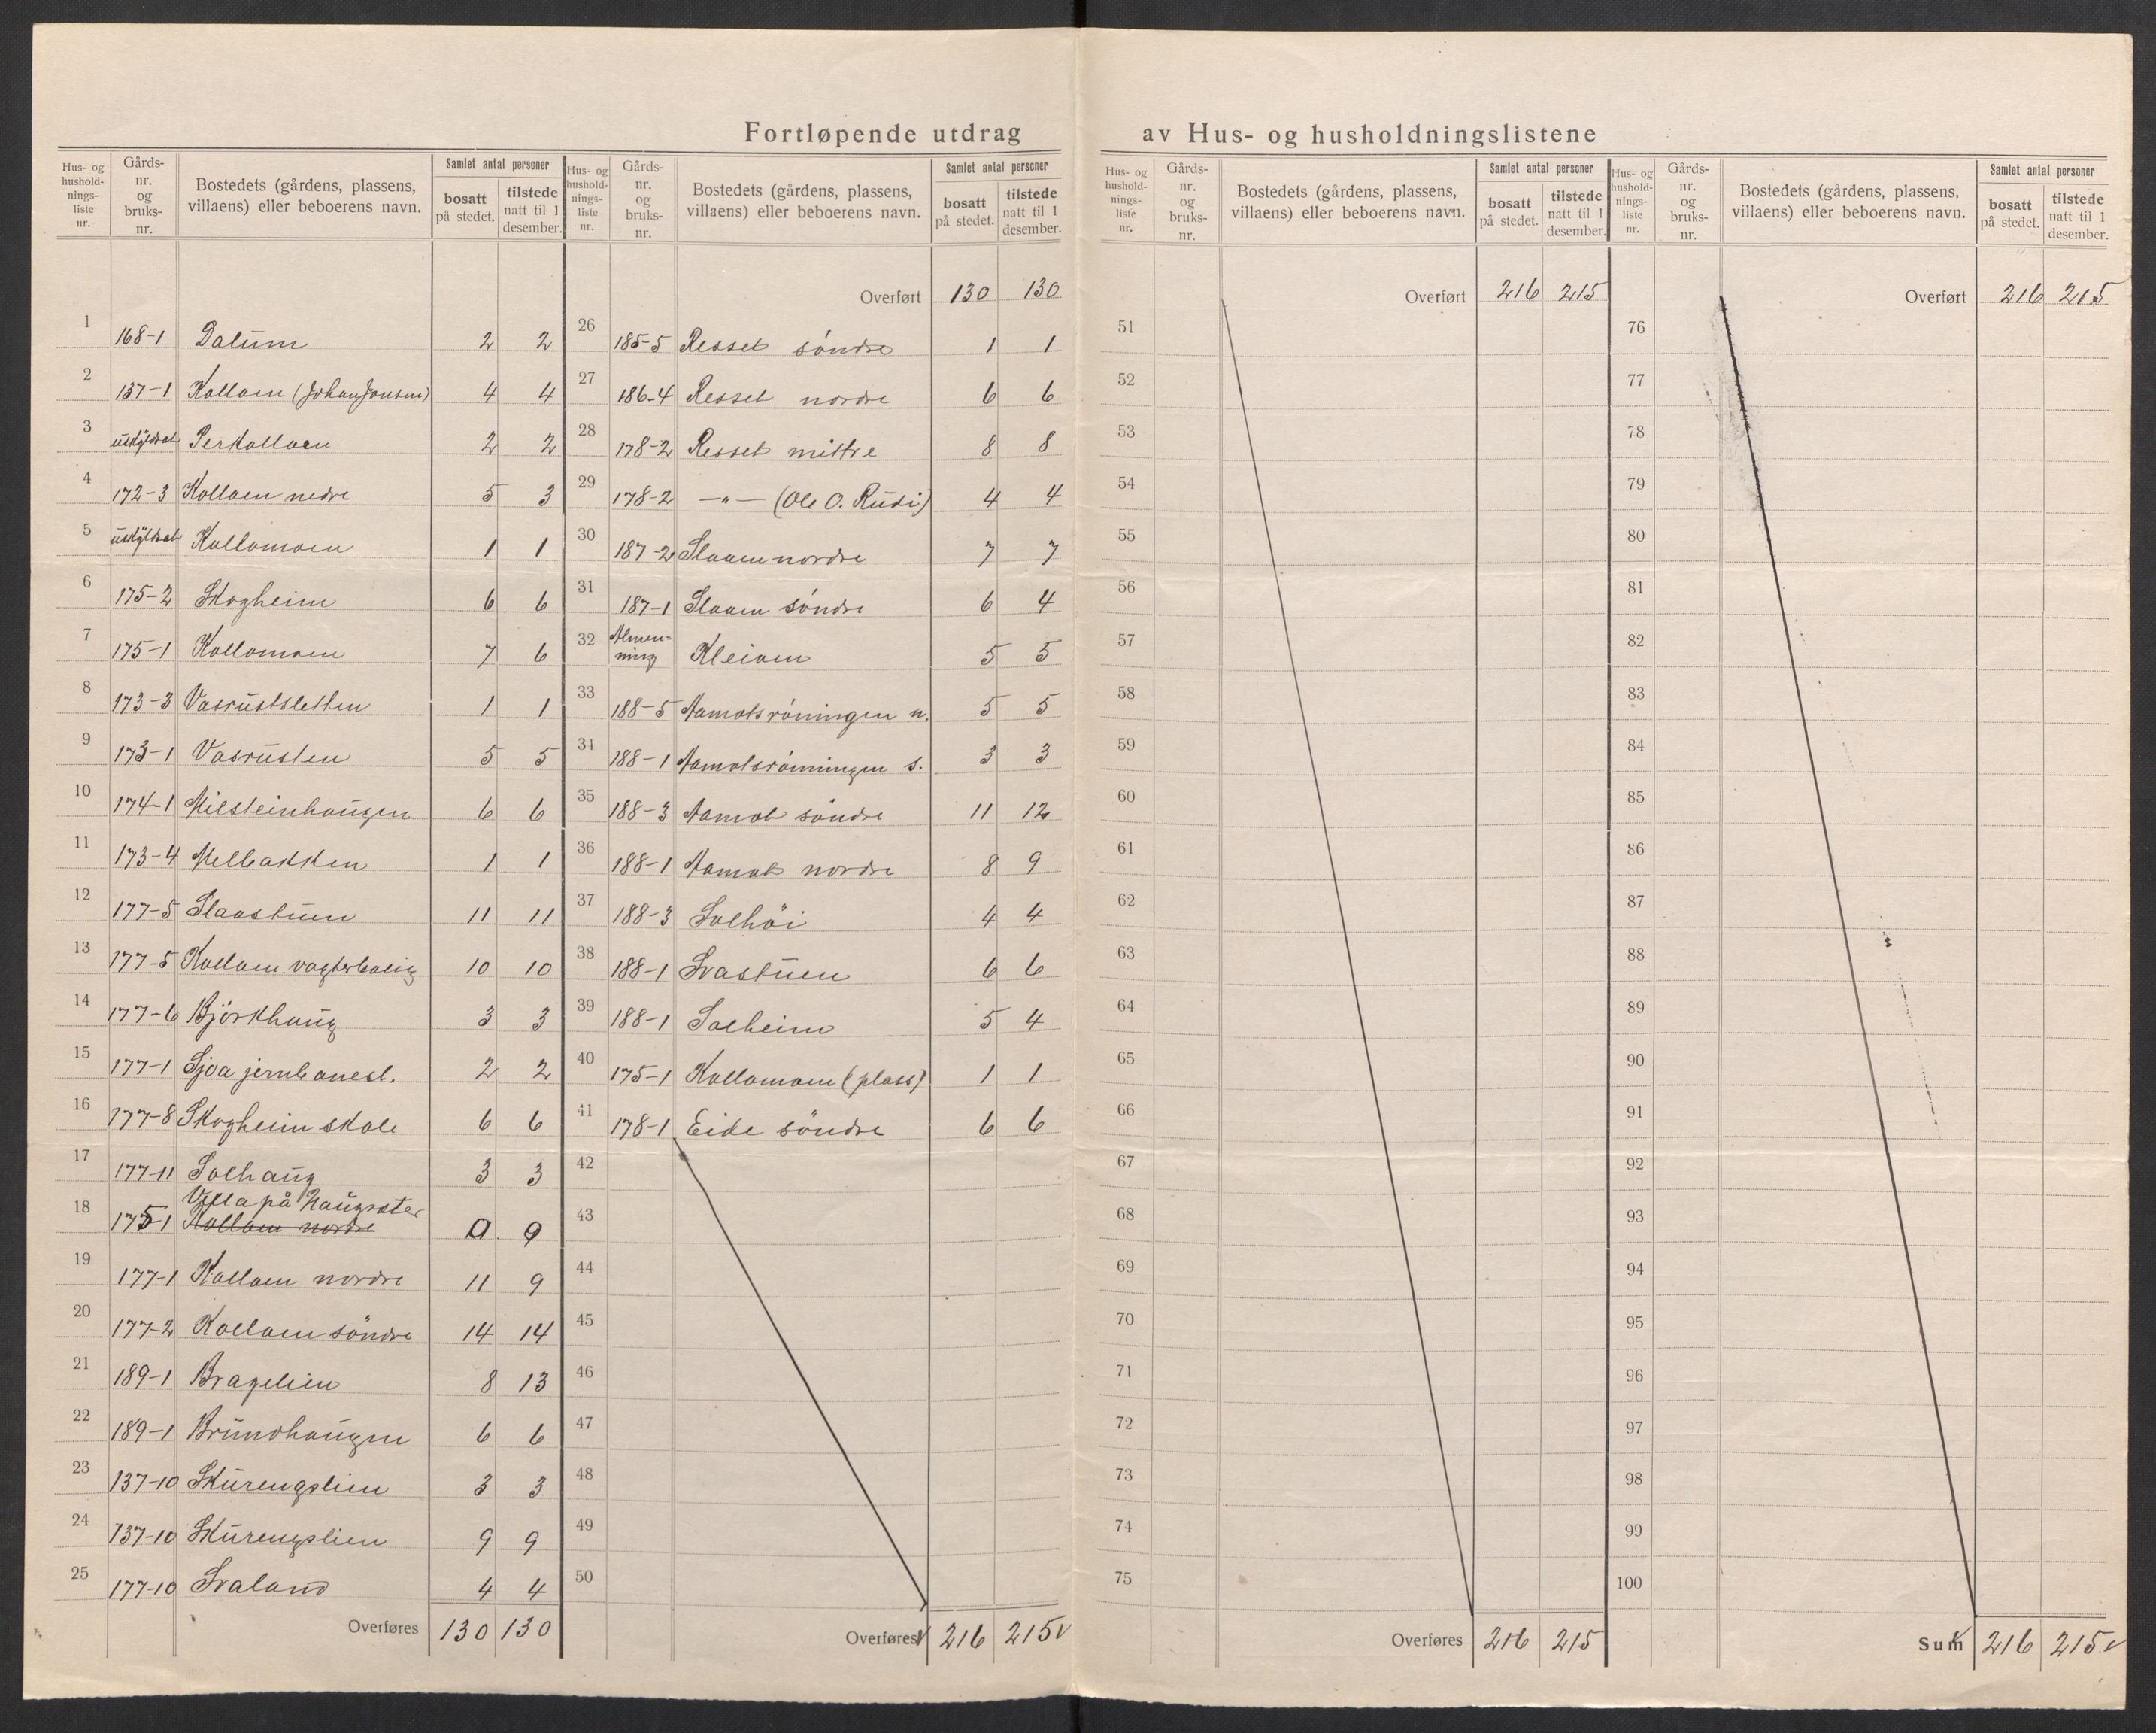 Fortløpende utdrag av Hus- og husholdningslistene
Hus- og husholdningsliste nr. Gårds-nr. og bruks-nr. Bostedets (gårdens, plassens, villaens) eller beboerens navn. Samlet antal personer bosatt på stedet. tilstede natt til 1 desember.
1 168-1 Dalum 2 2
2 137-1 Kollaen (Johan Jonsen) 4 4
3 uskyldsat Perkollaen 2 2
4 172-3 Kollaen nedre 5 3
5 uskyldsat Kollomoen 1 1
6 175-2 Skogheim 6 6
7 175-1 Kollomoen 7 6
8 173-3 Vasrustsletten 1 1
9 173-1 Vasrusten 5 5
10 174-1 Milsteinhaugen 6 6
11 173-4 Melbakken 1 1
12 177-5 Slaastuen 11 11
13 177-5 Kollaen vogterbolig 10 10
14 177-6 Björkhaug 3 3
15 177-1 Sjoa jernbanest. 2 2
16 177-8 Skogheim skole 6 6
17 177-11 Solhaug 3 3
Villa på Haugsæter
18 175-1 Kollaen nordre 0 9
19 177-1 Kollaen nordre 11 9
20 177-2 Kollaen söndre 14 14
21 189-1 Bragelien 8 13
22 189-1 Brundhaugen 6 6
23 137-10 Skurengslien 3 3
24 137-10 Skurengslien 9 9
25 177-10 Svaland 4 4
Overføres 130 130
Hus- og husholdningsliste nr. Gårds-nr. og bruks-nr. Bostedets (gårdens, plassens, villaens) eller beboerens navn. Samlet antal personer bosatt på stedet. tilstede natt til 1 desember.
Overført 130 130
26 185-5 Resset söndre 1 1
27 186-4 Resset nordre 6 6
28 178-2 Resset mittre 8 8
29 178-2 —"— (Ole O. Rudi) 4 4
30 187-2 Slaaen nordre 7 7
31 187-1 Slaaen söndre 6 4
32 Almenning Kleiven 5 5
33 188-5 Aamotsröningen n. 5 5
34 188-1 Aamotsröningen s. 3 3
35 188-3 Aamot söndre 11 12
36 188-1 Aamot nordre 8 9
37 188-3 Solhöi 4 4
38 188-1 Svastuen 6 6
39 188-1 Solheim 5 4
40 175-1 Kollomoen (plass) 1 1
41 178-1 Eide söndre 6 6
42
43
44
45
46
47
48
49
50
Overføres 216 215
Hus- og husholdningsliste nr. Gårds-nr. og bruks-nr. Bostedets (gårdens, plassens, villaens) eller beboerens navn. Samlet antal personer bosatt på stedet. tilstede natt til 1 desember.
Overført 216 215
51
52
53
54
55
56
57
58
59
60
61
62
63
64
65
66
67
68
69
70
71
72
73
74
75
Overføres 216 215
Hus- og husholdningsliste nr. Gårds-nr. og bruks-nr. Bostedets (gårdens, plassens, villaens) eller beboerens navn. Samlet antal personer bosatt på stedet. tilstede natt til 1 desember.
Overført 216 215
76
77
78
79
80
81
82
83
84
85
86
87
88
89
90
91
92
93
94
95
96
97
98
99
100
Sum 216 215